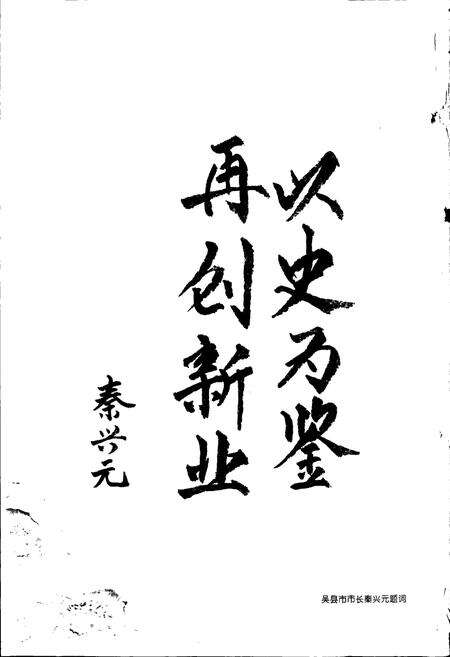 以史为鉴
再创新业
秦兴元
吴县市市长秦兴元题词